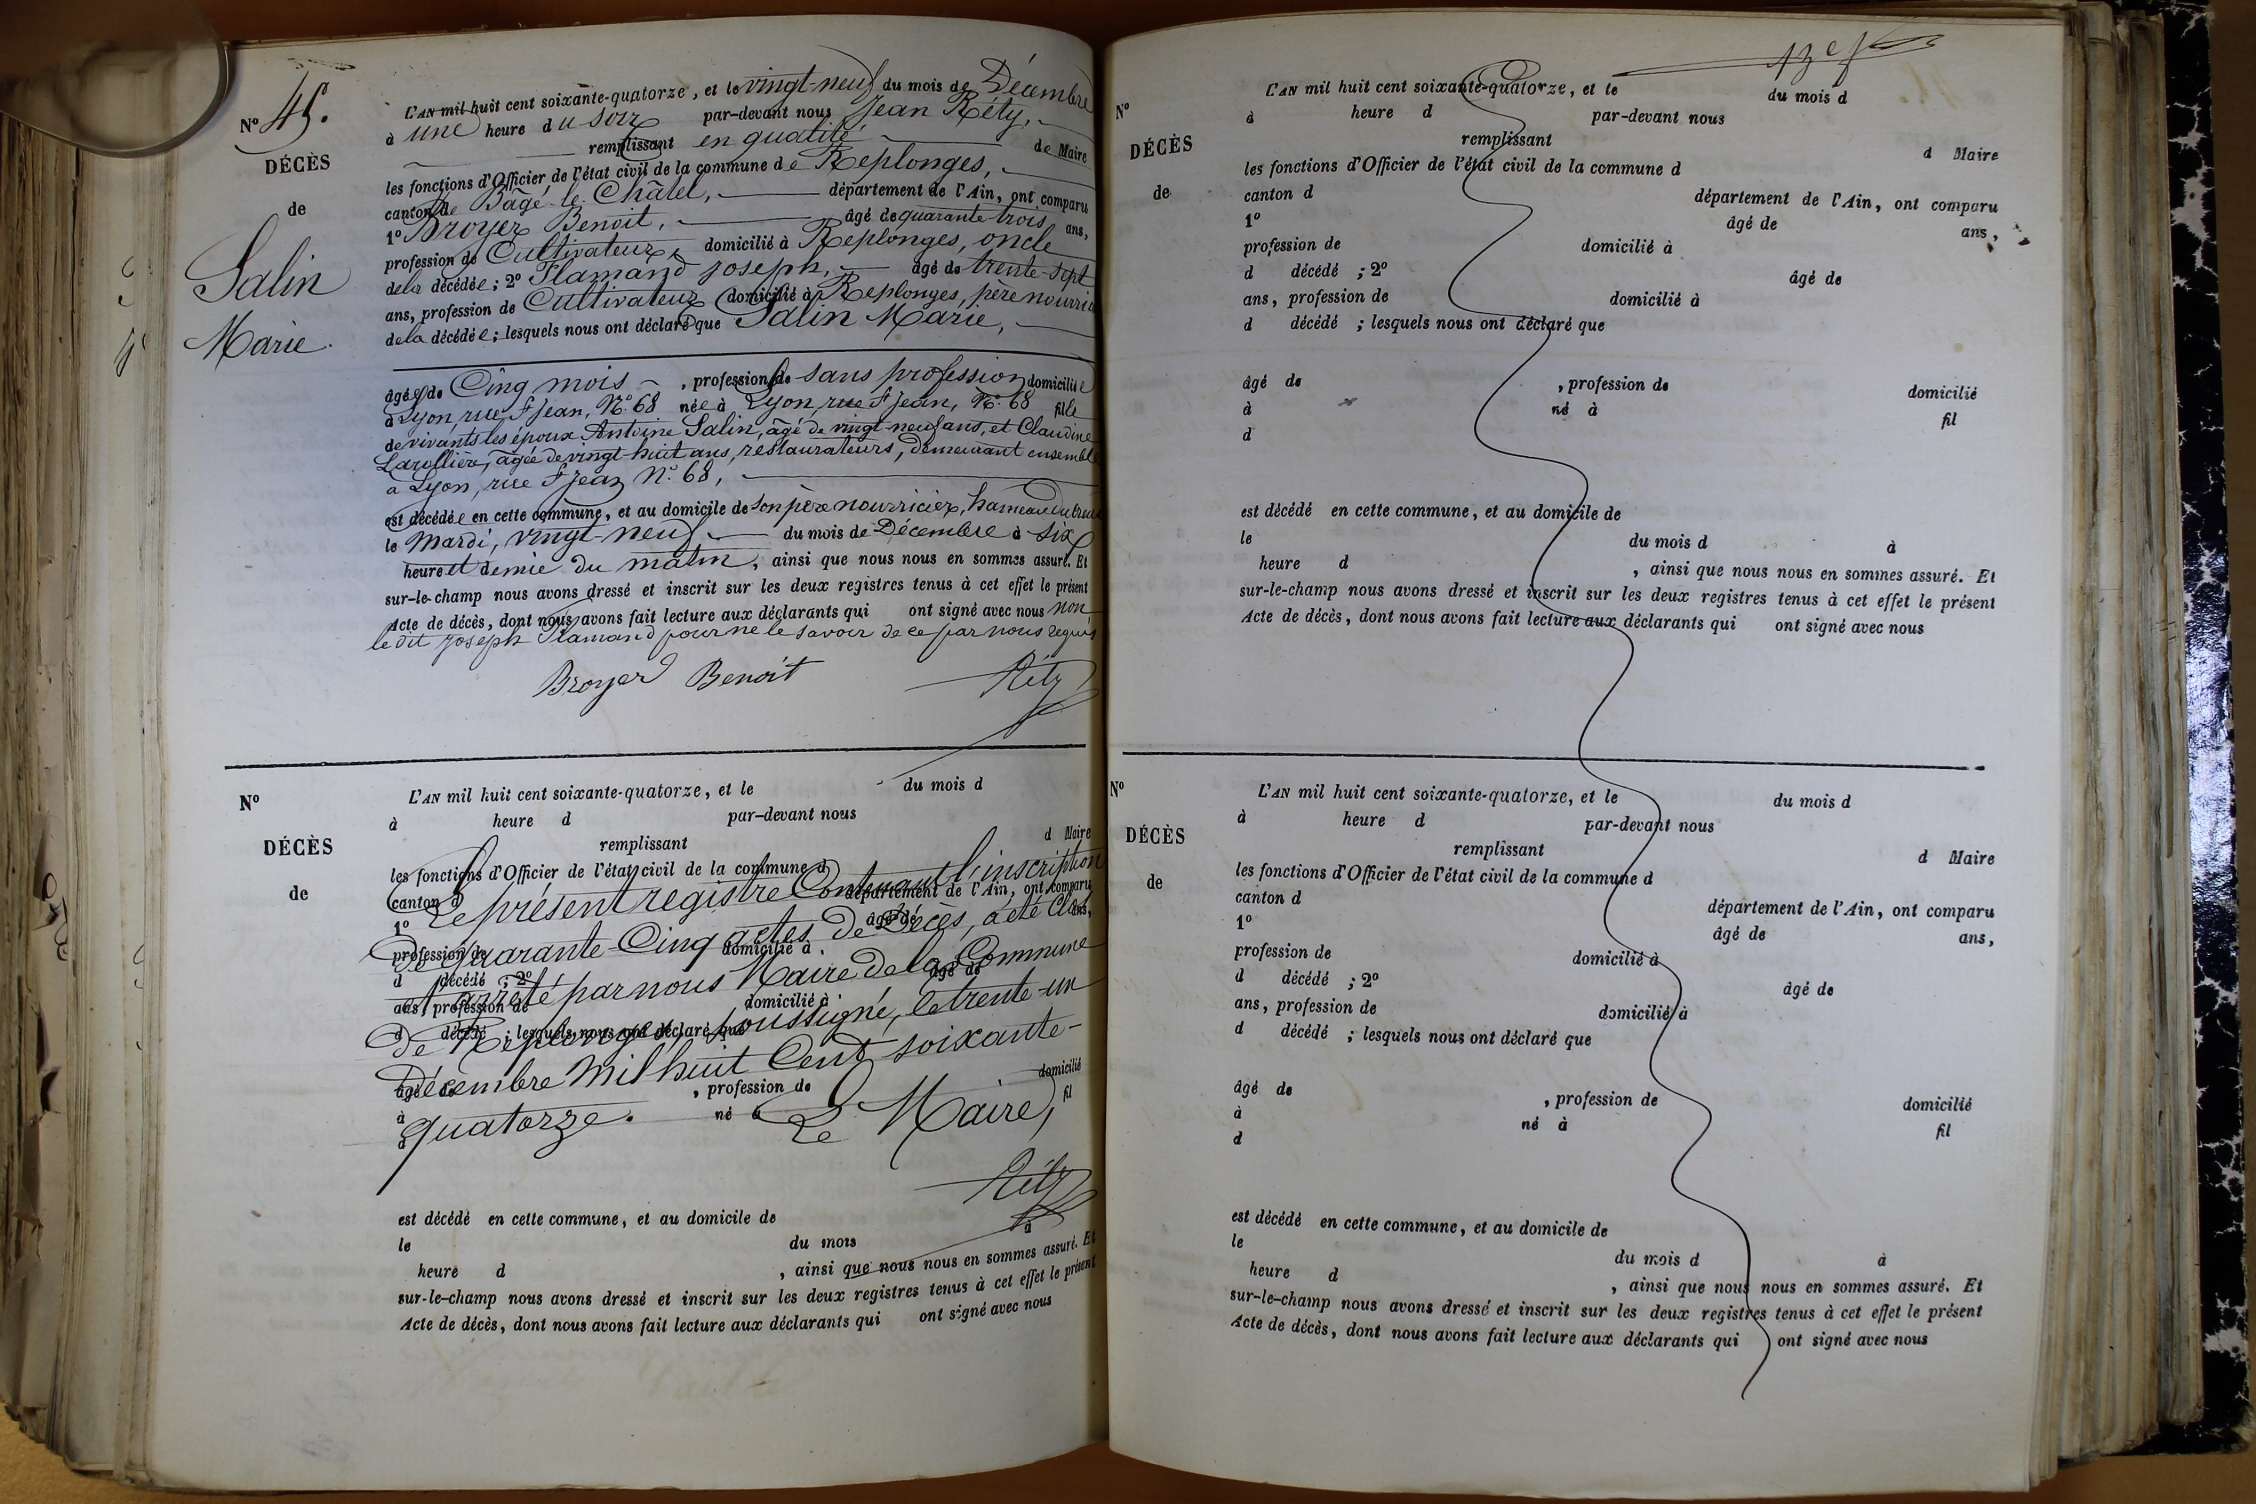 Nº 45.
DÉCÈS
de
Salin
Marie.
L'AN mil huit cent soixante-quatorze, et le vingt-neuf du mois de Décembre
à une heure du soir par-devant nous Jean Réty,
remplissant en qualité de Maire
les fonctions d'Officier de l'état civil de la commune de Replonges,
canton de Bâgé-le-Châtel, département de l'Ain, ont comparu
1º Broyer Benoit, âgé de quarante trois ans,
profession de Cultivateur, domicilié à Replonges, oncle
de la décédée ; 2º Flamand Joseph, âgé de trente-sept
ans, profession de Cultivateur domicilié à Replonges, père nourricier
de la décédée ; lesquels nous ont déclaré que Salin Marie,
âgée de Cinq mois, profession de sans profession domiciliée
à Lyon, rue St Jean, Nº 68 née à Lyon, rue St Jean, Nº 68 fille
de vivants les époux Antoine Salin, âgé de vingt-neuf ans, et Claudine
âgée de vingt-huit ans, restaurateurs, demeurant ensemble
à Lyon, rue St Jean Nº 68,
est décédée en cette commune, et au domicile de son père nourricier, hameau du
le Mardi, vingt-neuf du mois de Décembre à six
heure et demie du matin, ainsi que nous nous en sommes assuré. Et
sur-le-champ nous avons dressé et inscrit sur les deux registres tenus à cet effet le présent
Acte de décès, dont nous avons fait lecture aux déclarants qui ont signé avec nous non
le dit Joseph Flamand pour ne le savoir de ce par nous requis
Broyer Benoit Réty
Nº
DÉCÈS
de
L'AN mil huit cent soixante-quatorze, et le du mois d
à heure d par-devant nous
remplissant d Maire
les fonctions d'Officier de l'état civil de la commune d
canton d département de l'Ain, ont comparu
1º âgé de ans,
profession de domicilié à
d décédé ; 2º âgé de
ans, profession de domicilié à
d décédé ; lesquels nous ont déclaré que
âgé de , profession de domicilié
à né à fil
d
Le présent registre Contenant l'inscription
de quarante-Cinq actes de Décès, a été Clos
et arrêté par nous Maire de la Commune
de Replonges, soussigné, le trente-un
Décembre Mil huit Cent soixante-
quatorze.
Le Maire,
Réty
est décédé en cette commune, et au domicile de
le du mois à
heure d , ainsi que nous nous en sommes assuré. Et
sur-le-champ nous avons dressé et inscrit sur les deux registres tenus à cet effet le présent
Acte de décès, dont nous avons fait lecture aux déclarants qui ont signé avec nous
13e f
Nº
DÉCÈS
de
L'AN mil huit cent soixante-quatorze, et le du mois d
à heure d par-devant nous
remplissant d Maire
les fonctions d'Officier de l'état civil de la commune d
canton d département de l'Ain, ont comparu
1º âgé de ans,
profession de domicilié à
d décédé ; 2º âgé de
ans, profession de domicilié à
d décédé ; lesquels nous ont déclaré que
âgé de , profession de domicilié
à né à fil
d
est décédé en cette commune, et au domicile de
le du mois d à
heure d , ainsi que nous nous en sommes assuré. Et
sur-le-champ nous avons dressé et inscrit sur les deux registres tenus à cet effet le présent
Acte de décès, dont nous avons fait lecture aux déclarants qui ont signé avec nous
Nº
DÉCÈS
de
L'AN mil huit cent soixante-quatorze, et le du mois d
à heure d par-devant nous
remplissant d Maire
les fonctions d'Officier de l'état civil de la commune d
canton d département de l'Ain, ont comparu
1º âgé de ans,
profession de domicilié à
d décédé ; 2º âgé de
ans, profession de domicilié à
d décédé ; lesquels nous ont déclaré que
âgé de , profession de domicilié
à né à fil
d
est décédé en cette commune, et au domicile de
le du mois d à
heure d , ainsi que nous nous en sommes assuré. Et
sur-le-champ nous avons dressé et inscrit sur les deux registres tenus à cet effet le présent
Acte de décès, dont nous avons fait lecture aux déclarants qui ont signé avec nous